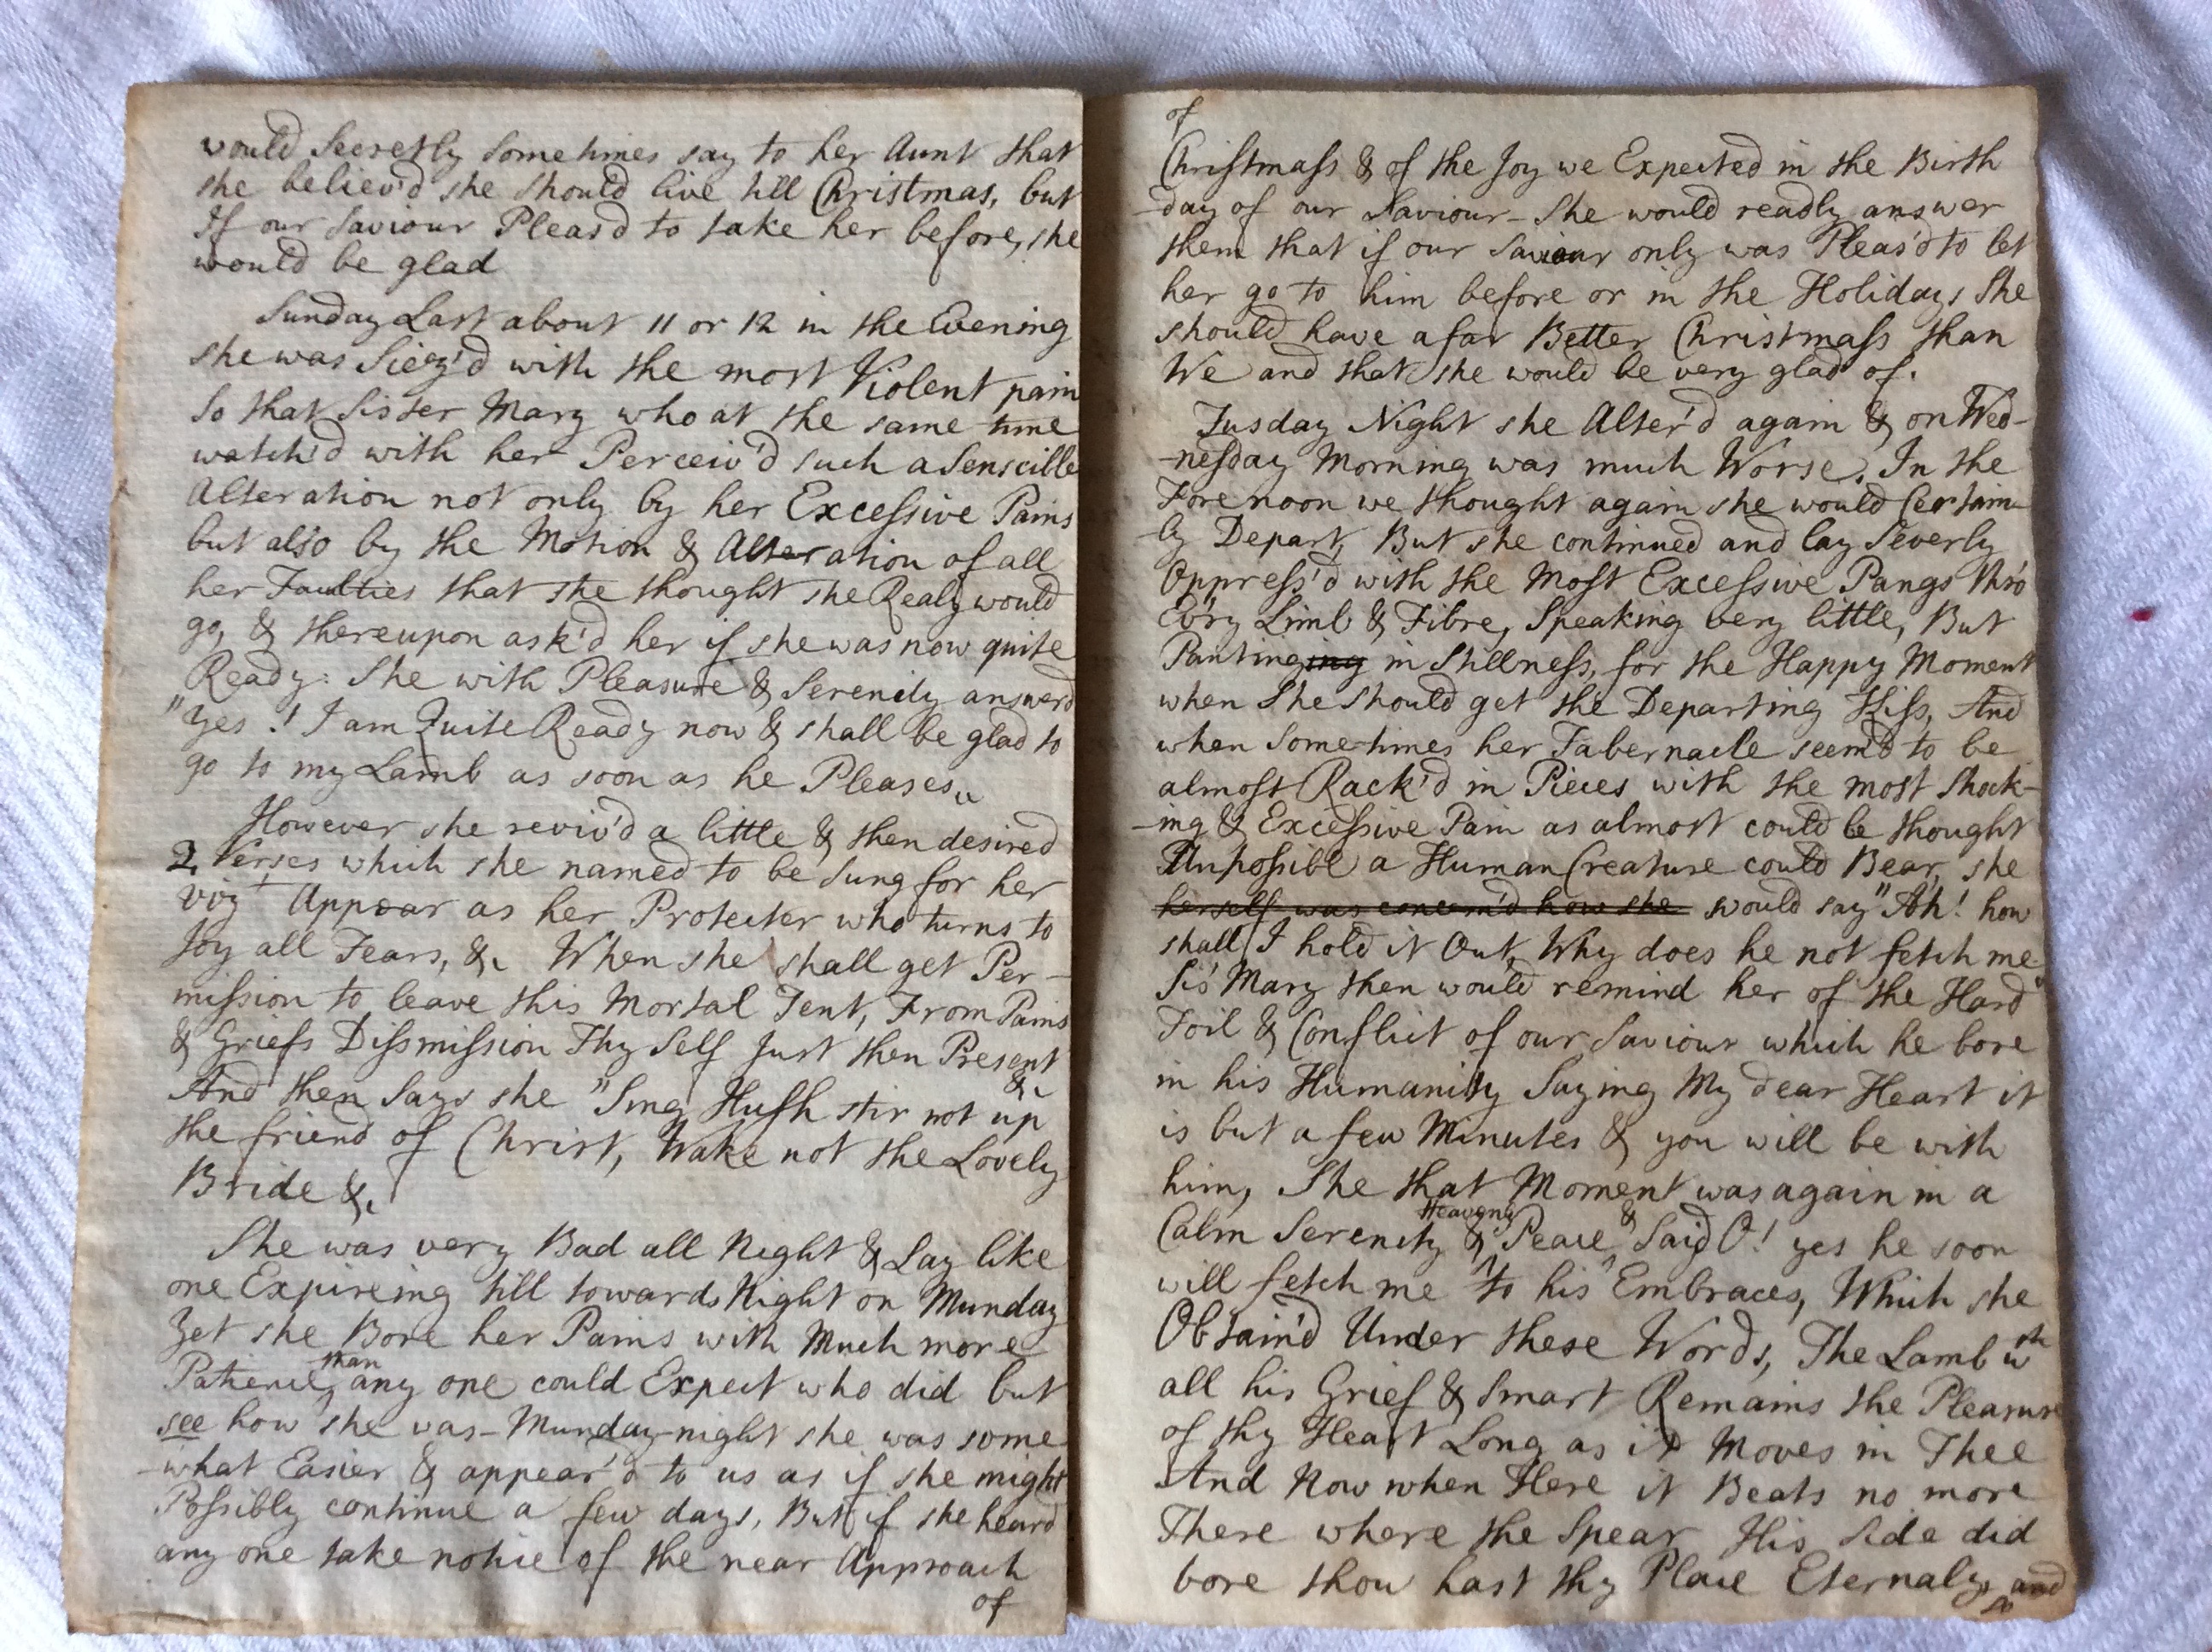 would Secretly sometimes say to her Aunt that
she believ'd she should live till Christmas, but
If our Saviour Pleas'd to take her before, she
would be glad
Sunday Last about 11 or 12 in the Evening
she was Siez'd with the most Violent pain
So that Sister Mary who at the same time
watch'd with her Perceiv'd such a Senscille
Alteration not only by her Excessive Pains
but also by the Motion & Alteration of all
her Faulties that she thought she Realy would
go, & thereupon ask'd her if she was now quite
Ready: She with Pleasure & Serenity answerd
"Yes! I am Quite Ready now & shall be glad to
go to my Lamb as soon as he Pleases"
However she reviv'd a little & then desired
2 Verses which she named to be Sung for her
vizt Appear as her Protecter who turns to
Joy all Fears, &c When she shall get Per-
mission to leave this Mortal Tent, From Pains
& Griefs Dissmission Thy Self Just then Present
&c
And then Says she "Sing Hush stir not up
the friend of Christ, Wake not the Lovely
Bride &c
She was very Bad all Night & Lay like
one Expireing till towards Night on Munday
Yet she Bore her Pains with Much more
Patience than any one could Expect who did but
see how she was - Munday night she was some
-what Easier & appear'd to us as if she might
Possibly continue a few days, But if she heard
any one take notice of the near Approach
of
of
Christmass & of the Joy we Expected in the Birth
-day of our Saviour - She would readly answer
them that if our Saviour only was Pleas'd to let
her go to him before or in the Holidays She
should have a far Better Christmass than
We and that she would be very glad of.
Tusday Night she Alter'd again & on Wed-
-nesday Morning was much Worse, In the
Forenoon we thought again she would Certain-
ly Depart, But she continued and lay Severly
Oppress'd with the Most Excessive Pangs thro'
Ev'ry Limb & Fibre, Speaking very little, But
Pantinging in Stillness, for the Happy Moment
when She should get the Departing Kiss, And
when Some-times her Tabernacle seem'd to be
almost Rack'd in Pieces with the most Shock-
-ing & Excessive Pain as almost could be thought
Unpossible a Human Creature could Bear, she
herself was concern'd how she would say "Ah! how
shall I hold it Out, Why does he not fetch me"
Sis' Mary then would remind her of the Hard
Toil & Conflict of our Saviour which he bore
in his Humanity Saying My dear Heart it
is but a few Minutes & you will be with
him, She that Moment was again in a
Calm Serenity & Heavenly Peace & Said O! yes he soon
will fetch me to his Embraces, Which she
Obtain'd Under these Words, The Lamb wth
all his Grief & Smart Remains the Pleasure
of thy Heart Long as it Moves in Thee
And Now when Here it Beats no more
There where the Spear His Side did
bore thou hast thy Place Eternaly, and